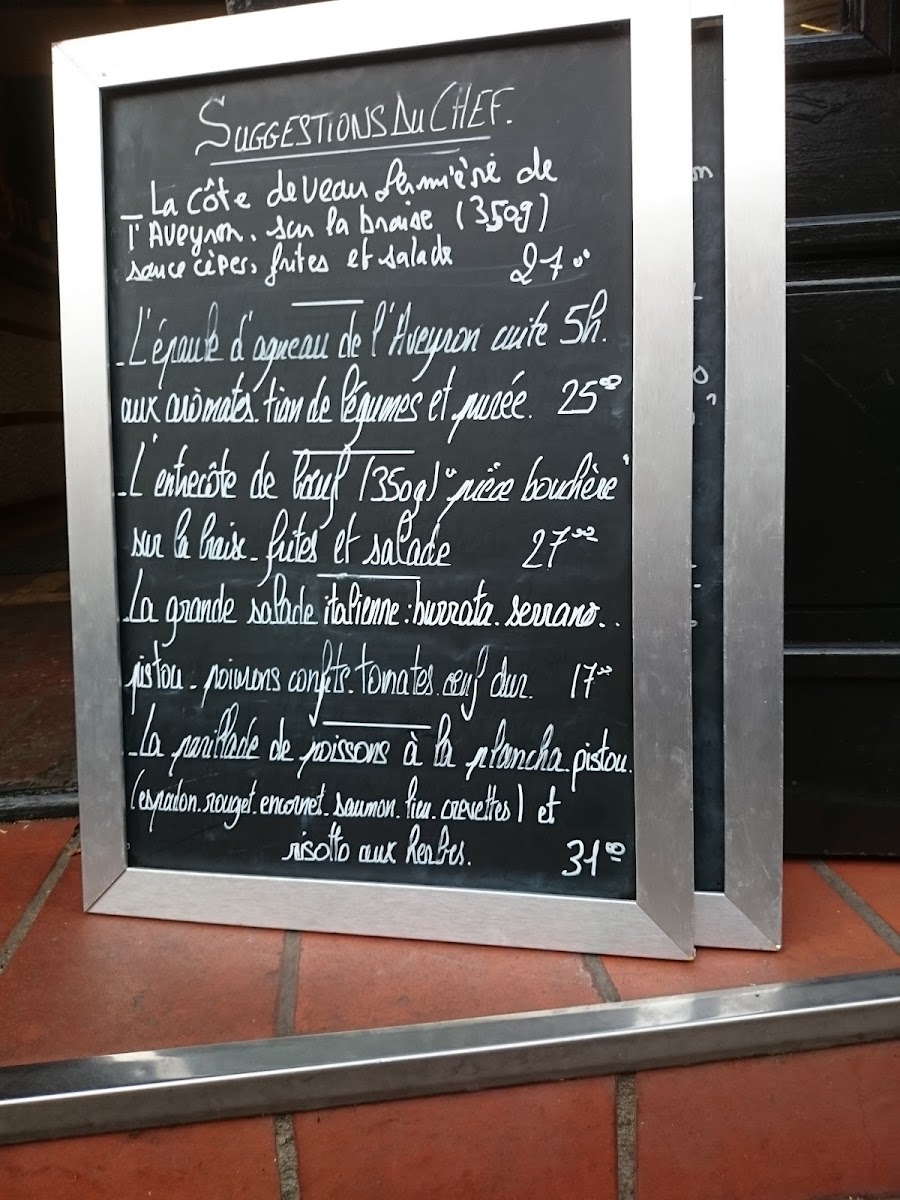 SUGGESTIONS DU CHEF.
_ La côte de veau fermière de
l'Aveyron. sur la braise (350g)
sauce cèpes, frites et salade 27°°
_ L'épaule d'agneau de l'Aveyron cuite 5h.
aux arômates. tian de légumes et purée. 25°°
_ L'entrecôte de bœuf (350g) "pièce bouchère"
sur la braise - frites et salade 27°°
_ La grande salade italienne : burrata. serrano..
pistou - poivrons confits. tomates. œuf dur. 17°°
_ La parillade de poissons à la plancha. pistou.
(espadon. rouget. encornet. saumon. lieu. crevettes) et
risotto aux herbes. 31°°